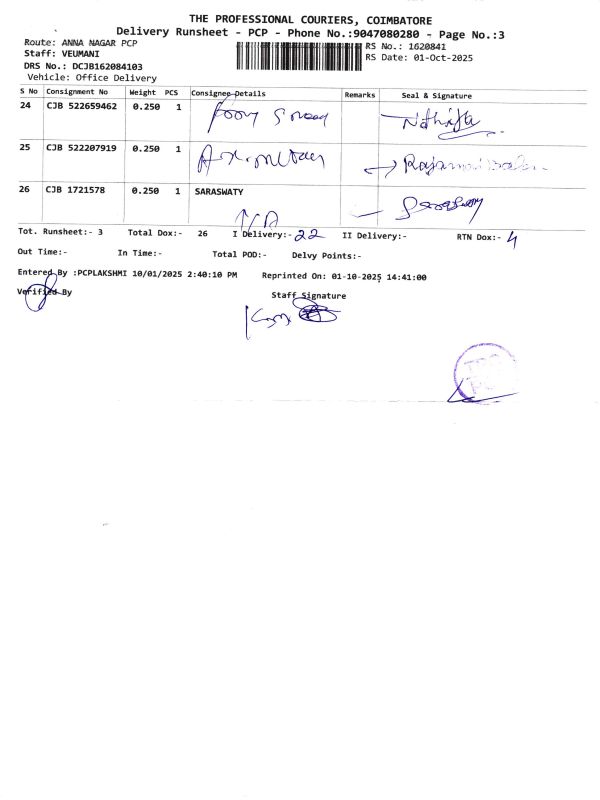 THE PROFESSIONAL COURIERS, COIMBATORE
Delivery Runsheet - PCP - Phone No.:9047080280 - Page No.:3
Route: ANNA NAGAR PCP
Staff: VEUMANI
DRS No.: DCJB162084103
Vehicle: Office Delivery
RS No.: 1620841
RS Date: 01-Oct-2025
S No Consignment No Weight PCS Consignee Details Remarks Seal & Signature
24 CJB 522659462 0.250 1
25 CJB 522207919 0.250 1
26 CJB 1721578 0.250 1 SARASWATY
Tot. Runsheet:- 3 Total Dox:- 26 I Delivery:- 22 II Delivery:- RTN Dox:- 4
Out Time:- In Time:- Total POD:- Delvy Points:-
Entered By :PCPLAKSHMI 10/01/2025 2:40:10 PM Reprinted On: 01-10-2025 14:41:00
Verified By Staff Signature